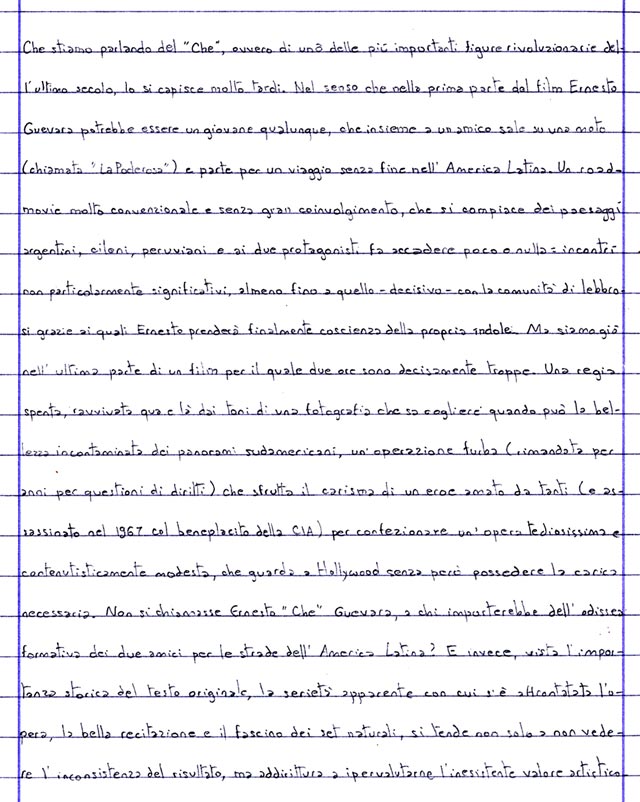 Che stiamo parlando del "Che", ovvero di una delle più importanti figure rivoluzionarie del-
l'ultimo secolo, lo si capisce molto tardi. Nel senso che nella prima parte del film Ernesto
Guevara potrebbe essere un giovane qualunque, che insieme a un amico sale su una moto
(chiamata "La Poderosa") e parte per un viaggio senza fine nell'America Latina. Un road-
movie molto convenzionale e senza gran coinvolgimento, che si compiace dei paesaggi
argentini, cileni, peruviani e ai due protagonisti fa accadere poco o nulla: incontri
non particolarmente significativi, almeno fino a quello - decisivo - con la comunità di lebbro-
si grazie ai quali Ernesto prenderà finalmente coscienza della propria indole. Ma siamo già
nell'ultima parte di un film per il quale due ore sono decisamente troppe. Una regia
spenta, ravvivata qua e là dai toni di una fotografia che sa cogliere quando può la bel-
lezza incontaminata dei panorami sudamericani, un'operazione furba (rimandata per
anni per questioni di diritti) che sfrutta il carisma di un eroe amato da tanti (e as-
sassinato nel 1967 col beneplacito della CIA) per confezionare un'opera tediosissima e
contenutisticamente modesta, che guarda a Hollywood senza però possedere la carica
necessaria. Non si chiamasse Ernesto "Che" Guevara, a chi importerebbe dell'odissea
formativa dei due amici per le strade dell'America Latina? E invece, vista l'impor-
tanza storica del testo originale, la serietà apparente con cui s'è affrontata l'o-
pera, la bella recitazione e il fascino dei set naturali, si tende non solo a non vede-
re l'inconsistenza del risultato, ma addirittura a ipervalutarne l'inesistente valore artistico